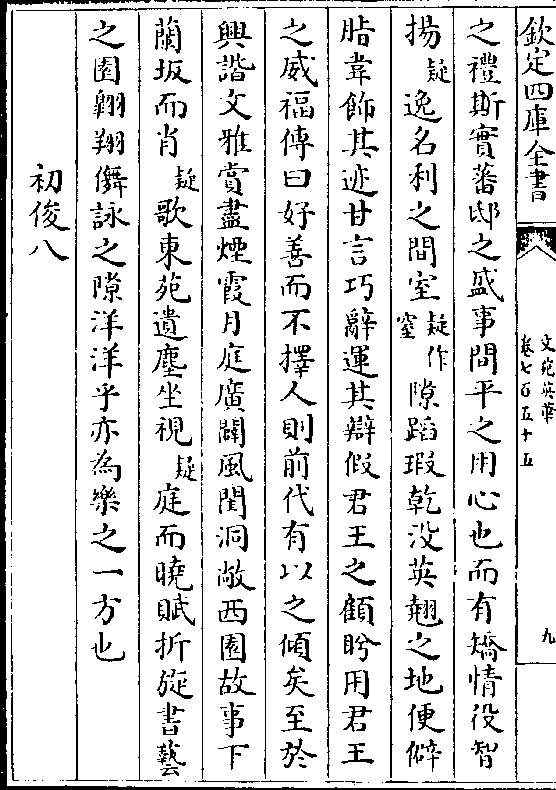 欽定四庫全書
文苑英華
卷七百五十五
九
之禮斯實蕃邸之盛事間平之用心也而有矯情役智
揚疑逸名利之間室疑作窒隙蹈瑕乾没英翹之地便僻
脂韋飾其迹甘言巧辭運其辯假君王之顧眄用君王
之威福傳曰好善而不擇人則前代有以之傾矣至於
興諧文雅賞盡煙霞月庭廣闢風閨洞敞西園故事下
蘭坂而肖疑歌東苑遺塵坐視疑庭而曉賦折旋書藝
之圃翺翔儛詠之隙洋洋乎亦為樂之一方也
初俊八